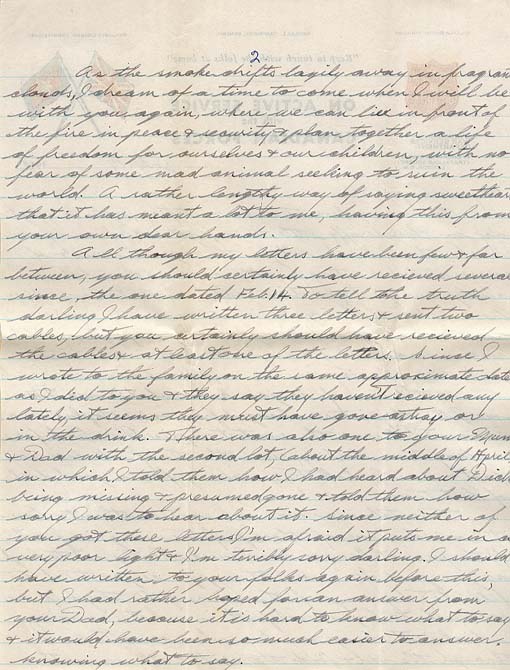 2
As the smoke drifts lazily away in fragran
clouds, I dream of a time to come when I will be
with you again, where we can lie in front of
the fire in peace & scurity & plan together a life
of freedom for ourselves & our children, with no
fear of some mad animal seeking to ruin the
world. A rather lengthy way of saying sweethear
that it has meant a lot to me, having this from
your own dear hands.
All though my letters have been few & far
between, you should certainly have recieved severa
since, the one dated Feb. 14. To tell the truth
darling I have written three letters, & sent two
cables, but you certainly should have recieved
the cables & at least one of the letters. Since I
wrote to the family on the same approximate date
as I did to you & they say they haven't recieved any
lately it seems they must have gone astray or
in the drink. There was also one to your Mum
& Dad with the second lot, (about the middle of April
in which I told them how I had heard about Dick
being missing & presumed gone & told them how
sory I was to hear about it. Since neither of
you got these letters I'm afraid it puts me in a
very poor light & I'm terribly sory darling. I should
have written to your folks again before this,
but I had rather hoped for an answer from
your Dad, because it is hard to know what to say
& it would have been so much easier to answer
knowing what to say.